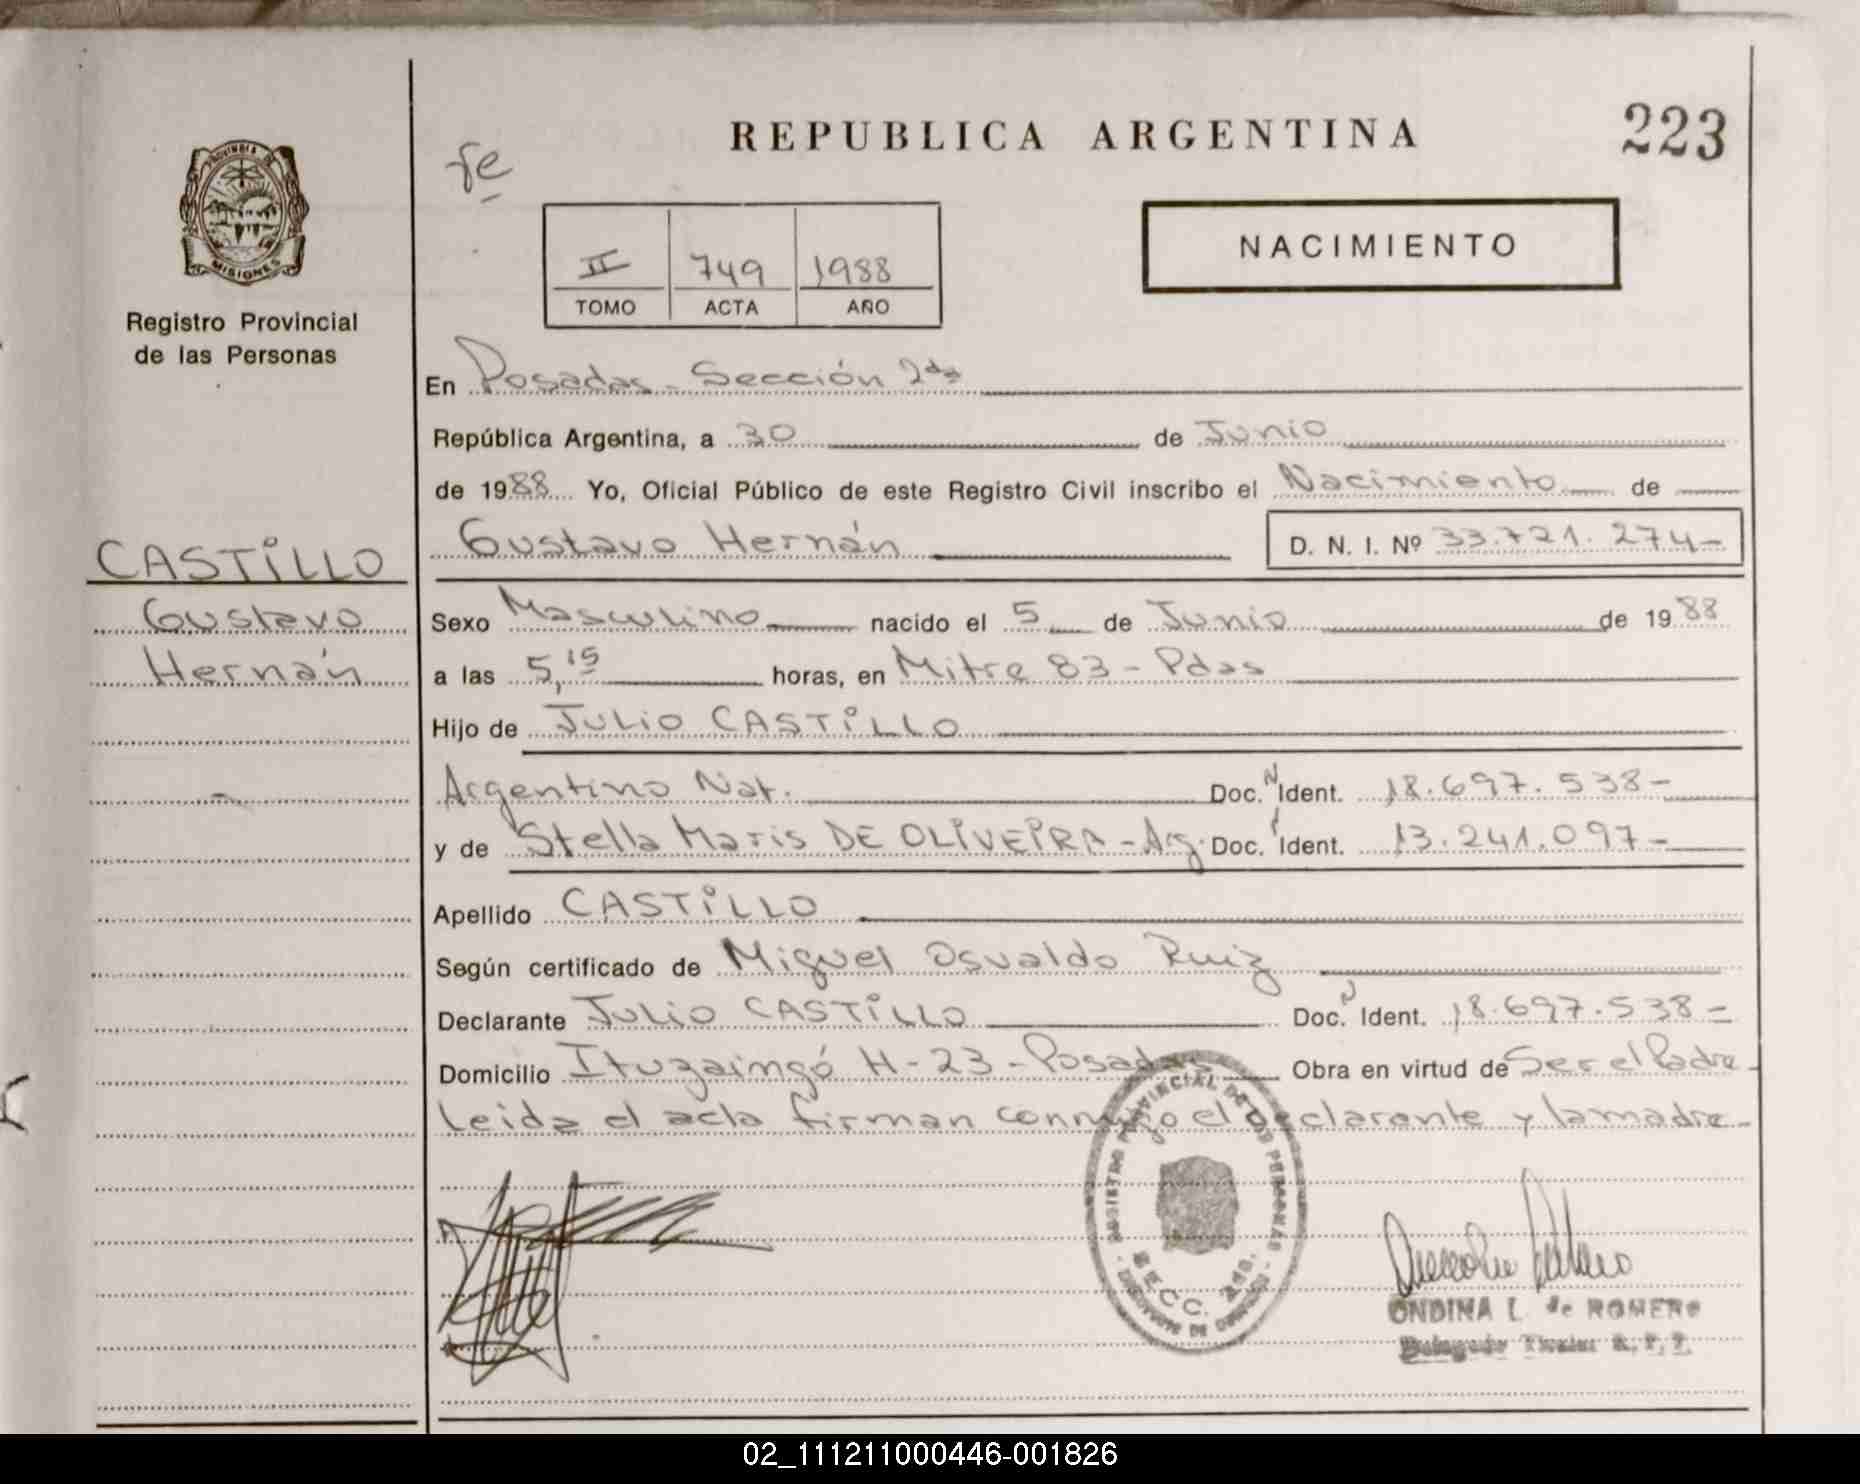 REPUBLICA ARGENTINA
223
PROVINCIA DE
MISIONES
Registro Provincial
de las Personas
II 749 1988
TOMO ACTA AÑO
NACIMIENTO
En Posadas - Sección 2da
República Argentina, a 30 de Junio
de 1988 Yo, Oficial Público de este Registro Civil inscribo el Nacimiento de
Gustavo Hernán D. N. I. Nº 33.721.274-
CASTILLO
Gustavo
Hernán
Sexo Masculino nacido el 5 de Junio de 1988
a las 5,15 horas, en Mitre 83 - Pdas
Hijo de JULIO CASTILLO
Argentino Nat. Doc. N Ident. 18.697.538-
y de Stella Maris DE OLIVEIRA - Arg. Doc. Ident. 13.241.097-
Apellido CASTILLO
Según certificado de Miguel Osvaldo Ruiz
Declarante JULIO CASTILLO Doc. N Ident. 18.697.538-
Domicilio Ituzaingó H-23 - Posadas Obra en virtud de Ser el Padre
Leida el acta firman conmigo el declarante y la madre-
REGISTRO PROVINCIAL DE LAS PERSONAS
SECC. 2da.
ONDINA L. de ROMERO
Titular
02_111211000446-001826